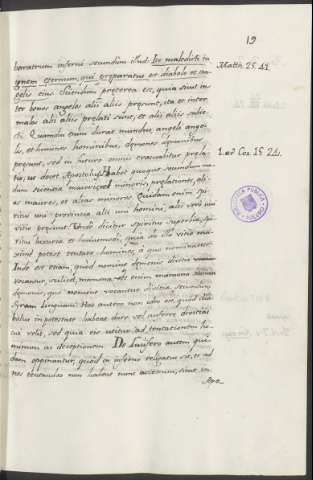 19
baratrum inferni secundum illud. Ite maledicti in
ignem eternum, qui preparatus est diabolo et an-
gelis eius. Sciendum preterea est, quia sicut in-
ter bonos angelos alii aliis presunt, ita et inter
malos alii aliis prelati sunt, et alii aliis subie-
cti. Quamdiu enim durat mundus, angeli ange-
lis, et homines hominibus, demones demonibus
presunt, sed in futuro omnis evacuabitur prela-
tio, ut docet Apostolus. Habet quoque secundum mo-
dum scientiae maioris vel minoris, prelationes, ali-
as maiores, et alias minores. Quidam enim spi-
ritus uni provincie alii uni homini, alii vero uni
vitio presunt. Unde dicitur spiritus superbie, spi-
ritus luxurie et huiusmodi, quia de illo vitio maxime
potest tentare homines, a quo nominatur.
Inde est etiam, quod nomine demonis divitie
vocantur, scilicet, mammona, est enim mammona nomen
demonis, quo nomine vocantur divitie, secundum
Syram linguam. Hoc autem non ideo est, quod dia-
bolus in potestate habeat dare vel auferre divitias
cui velit, sed quia eis utitur ad tentationem ho-
minum ac deceptionem. De Lucifero autem qui-
dam opinantur, quod in inferno religatus sit, et ad
nos tentandos non habeat nunc accessum, sicut in
Apo-
Matth. 25. 41.
1. ad Cor. 15. 24.